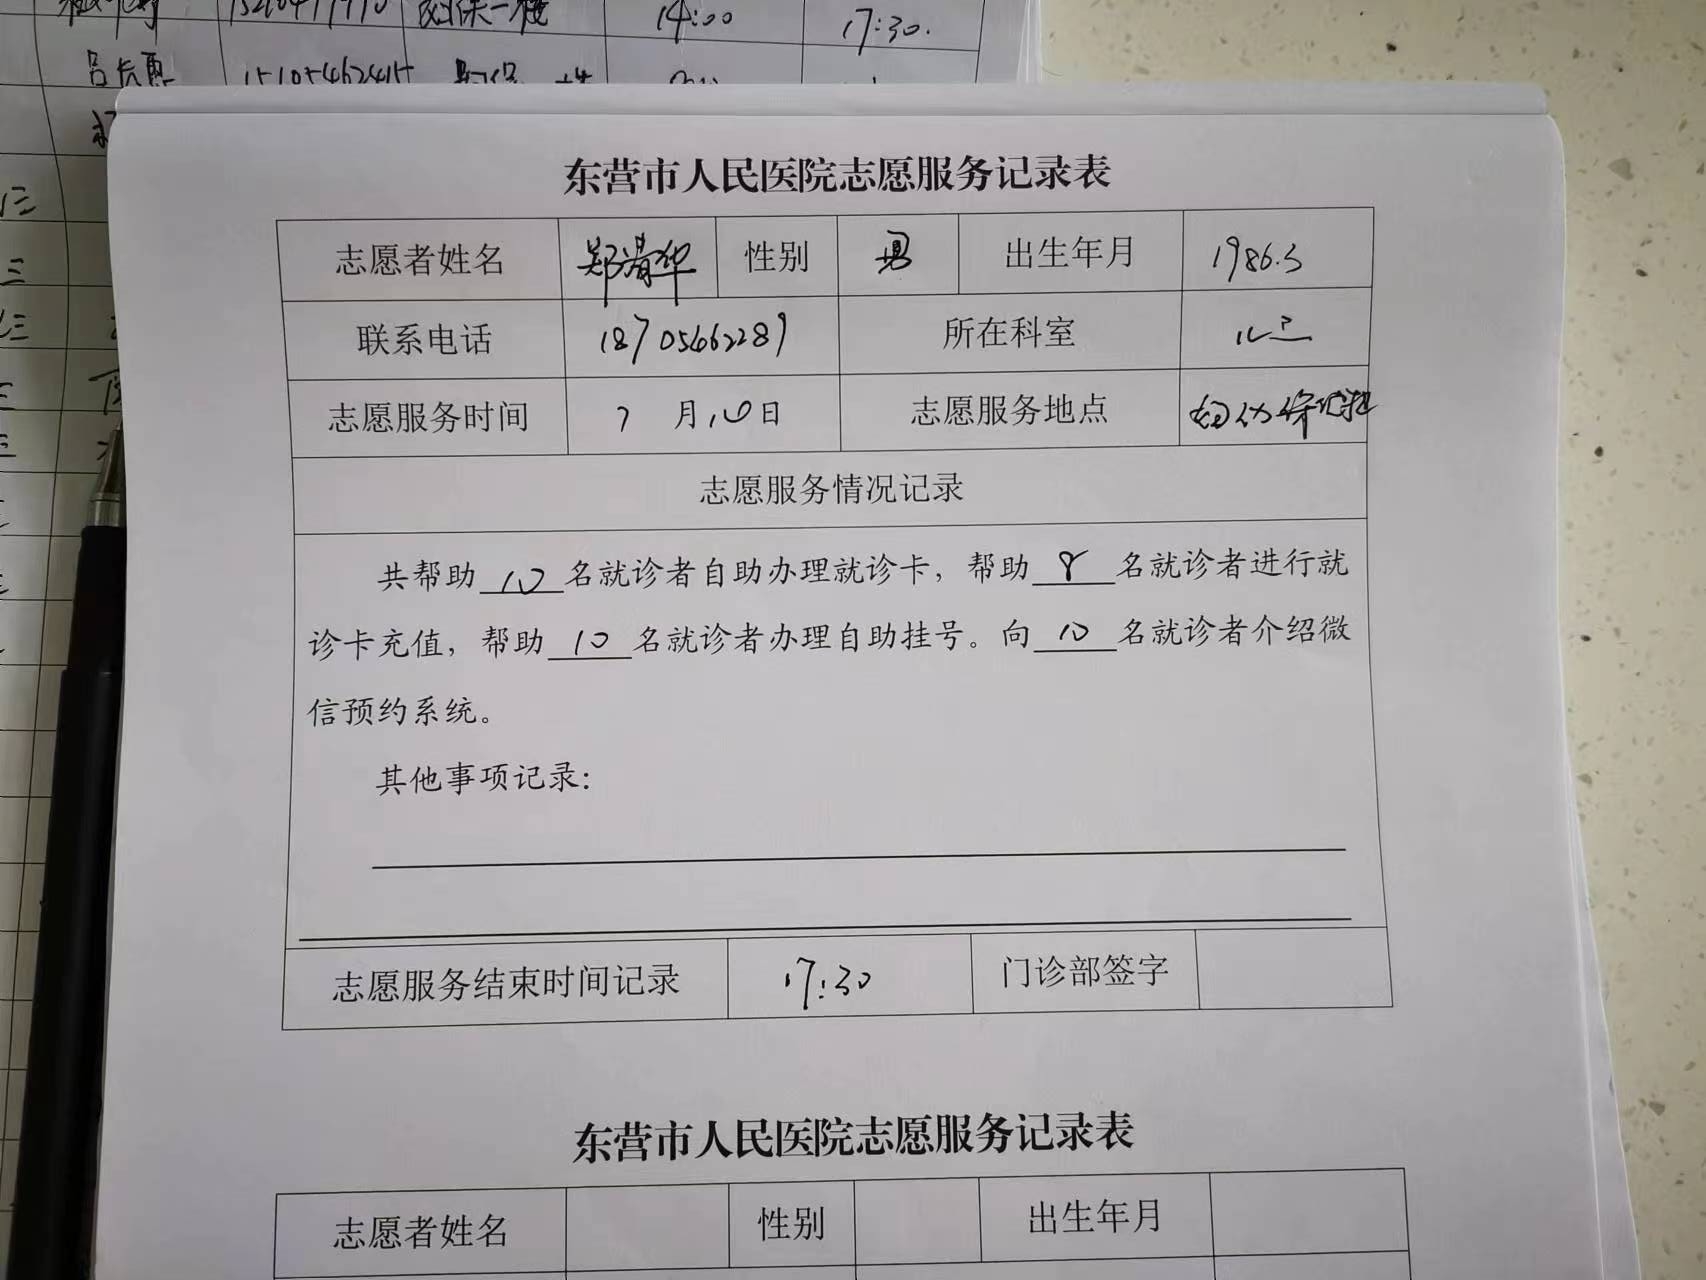 14:00 17:30.
15105462415
东营市人民医院志愿服务记录表
志愿者姓名 郑清华 性别 男 出生年月 1986.3
联系电话 18705462289 所在科室 儿三
志愿服务时间 7月10日 志愿服务地点
志愿服务情况记录
共帮助 10 名就诊者自助办理就诊卡，帮助 8 名就诊者进行就
诊卡充值，帮助 10 名就诊者办理自助挂号。向 10 名就诊者介绍微
信预约系统。
其他事项记录：
志愿服务结束时间记录 17:30 门诊部签字
东营市人民医院志愿服务记录表
志愿者姓名 性别 出生年月